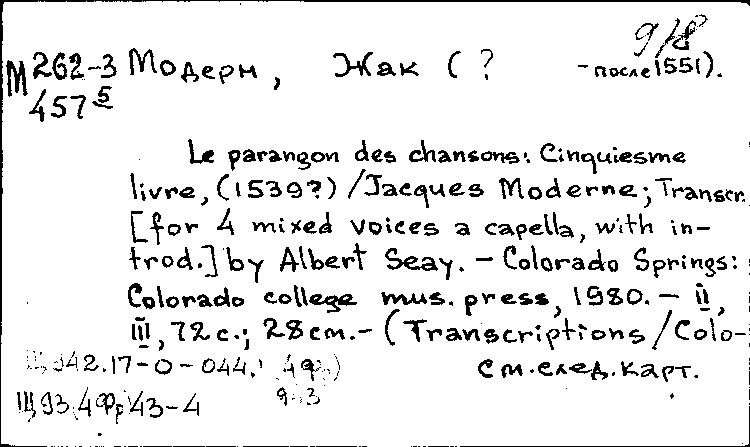 9/8
М 262-3 Модерн, Жак ( ? -после 1551).
457 5
Le parangon des chansons: Cinquiesme
livre, (1539?) / Jacques Moderne; Transcr.
[for 4 mixed voices a capella, with in-
trod.] by Albert Seay. - Colorado Springs:
Colorado college mus. press, 1980. - II,
III, 72 с.; 28 cm. - (Transcriptions / Colo-
Щ942.17-0-044. 4Фр) см. след. карт.
Щ93(4Фр)43-4